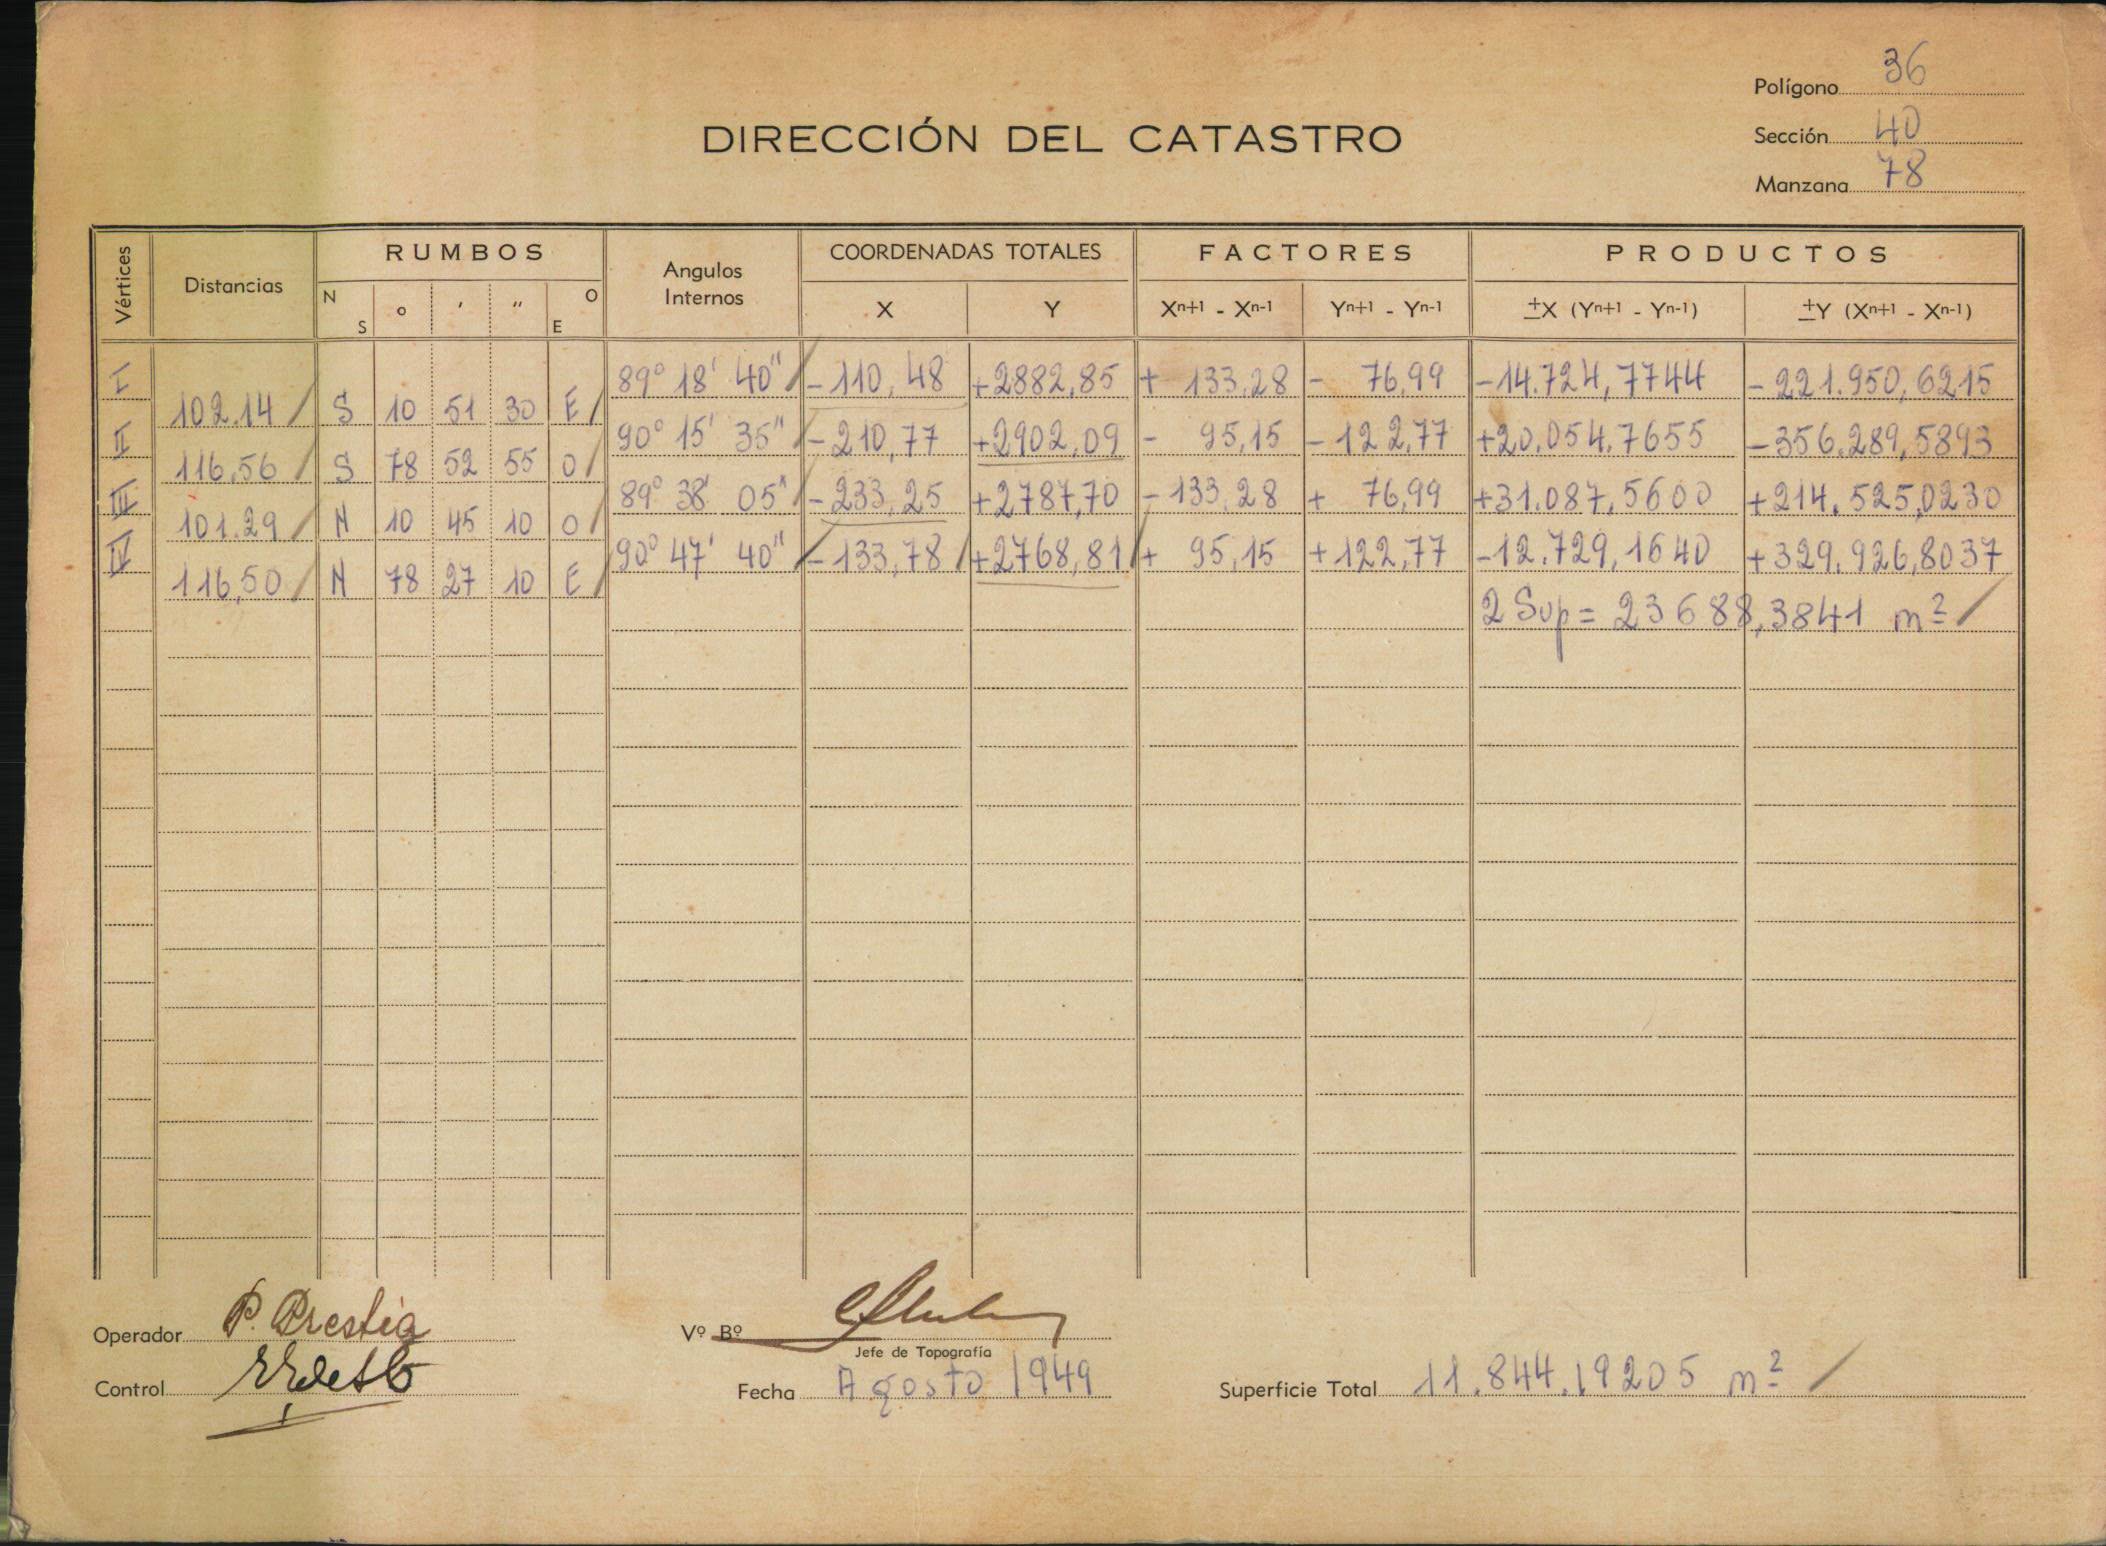 Polígono 36
DIRECCIÓN DEL CATASTRO
Sección 40
Manzana 78
Vértices Distancias RUMBOS Angulos Internos COORDENADAS TOTALES FACTORES PRODUCTOS
N S o ' " O E X Y Xn+1 - Xn-1 Yn+1 - Yn-1 ±X (Yn+1 - Yn-1) ±Y (Xn+1 - Xn-1)
I 89° 18' 40" -110,48 +2882,85 + 133,28 - 76,99 -14.724,7744 -221.950,6215
102.14 S 10 51 30 E
II 90° 15' 35" -210,77 +2902,09 - 95,15 -122,77 +20.054,7655 -356.289,5893
116,56 S 78 52 55 O
III 89° 38' 05" -233,25 +2787,70 -133,28 + 76,99 +31.087,5600 +214.525,0230
101.29 N 10 45 10 O
IV 90° 47' 40" -133,78 +2768,81 + 95,15 +122,77 -12.729,1640 +329.926,8037
116,50 N 78 27 10 E
2 Sup = 23688,3841 m²
Operador P. Prestia
Vº Bº
Jefe de Topografía
Control
Fecha Agosto 1949
Superficie Total 11.844.19205 m²